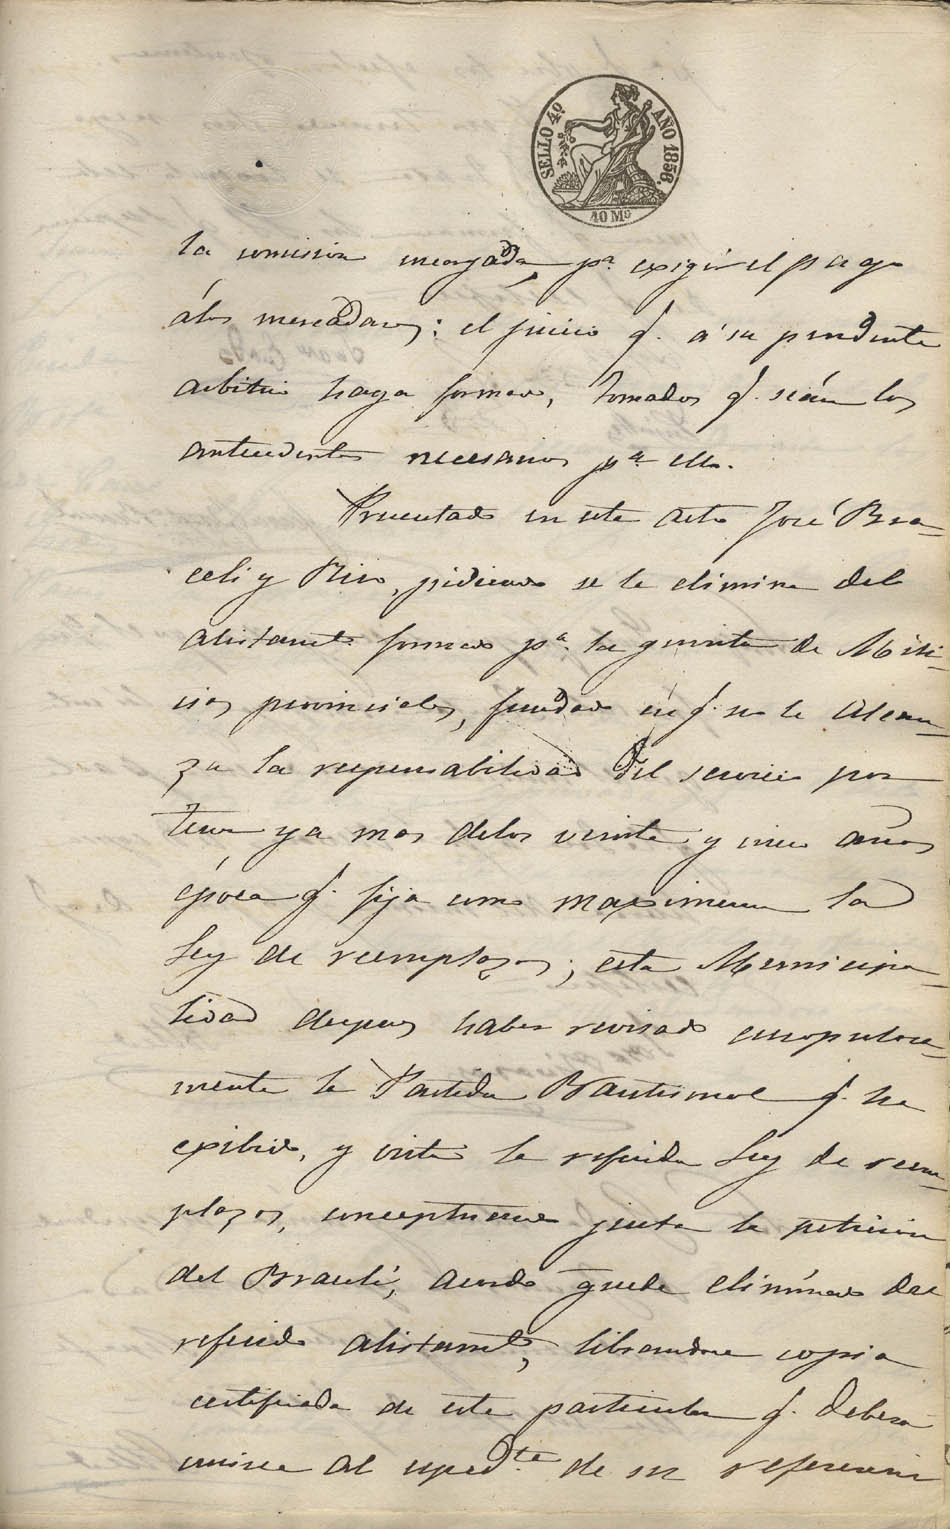 SELLO 4º AÑO 1856.
40 Mº
la comision encargada, pª exigir el pago
á los mercaderes; el juicio q. a su prudente
arbitrio haga formar, tomados q. seán los
antecedentes necesarios pª ello.
Presentado en este acto José Bra-
celi y Rico, pidiendo se le elimine del
alistamtº formado pª la quinta de Mili-
cias provinciales, fundado en q. no le alcan-
za la responsabilidad del servicio por
tener ya mas delos veinte y cinco años
época q. fija como maximum la
Ley de reemplazos; esta Municipa-
lidad despues haber revisado escrupulosa-
mente la Partida Bautismal q. ha
exibido, y vista la referida Ley de reem-
plazos, conceptuando justa la peticion
del Bracelí, acordó quede eliminado del
referido alistamtº, librandose copia
certificada de este particular q. deberá
unirse al espedte de su referencia